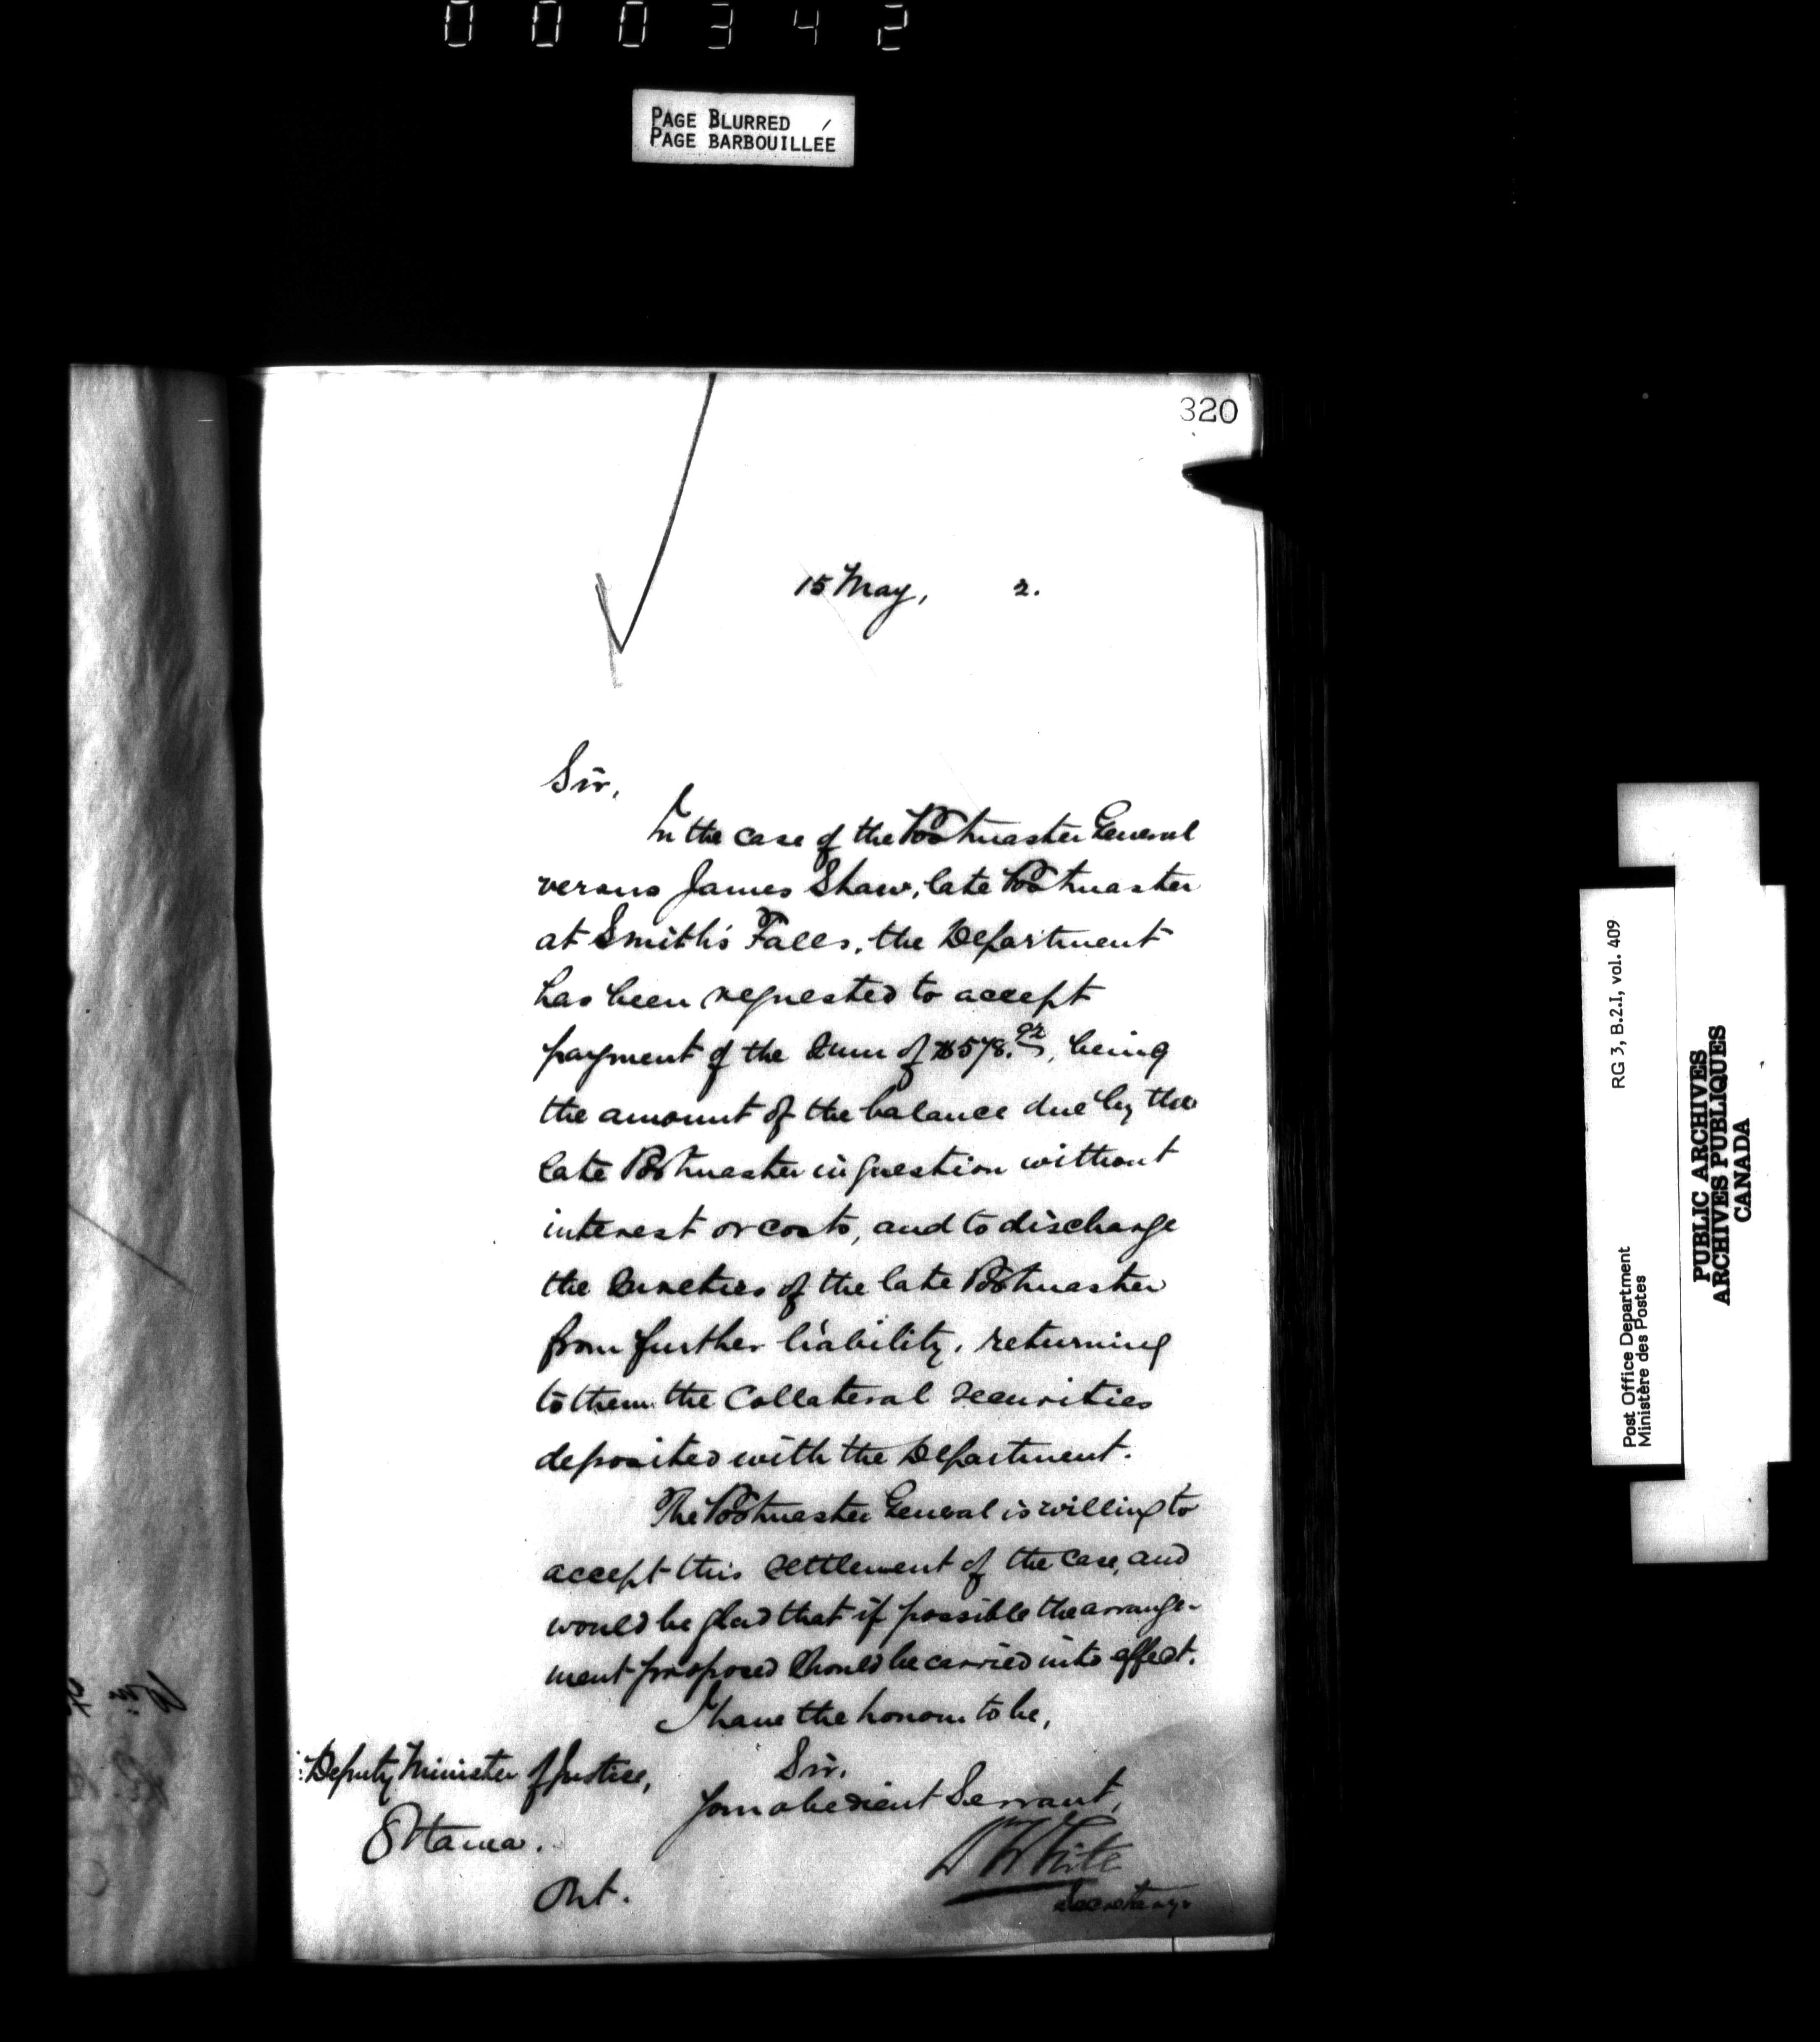 000342
PAGE BLURRED
PAGE BARBOUILLÉE
320
15 May, 2.
Sir,
In the case of the Postmaster General
versus James Shaw, late Postmaster
at Smith's Falls, the Department
has been requested to accept
payment of the sum of $578.92, being
the amount of the balance due by the
late Postmaster in question without
interest or costs, and to discharge
the sureties of the late Postmaster
from further liability, returning
to them the collateral securities
deposited with the Department.
The Postmaster General is willing to
accept this settlement of the case, and
would be glad that if possible the arrange-
ment proposed should be carried into effect.
I have the honour to be,
Sir,
Your obedient Servant,
White
Secretary
Deputy Minister of Justice,
Ottawa.
Ont.
RG 3, B.2.I, vol. 409
Post Office Department
Ministère des Postes
PUBLIC ARCHIVES
ARCHIVES PUBLIQUES
CANADA